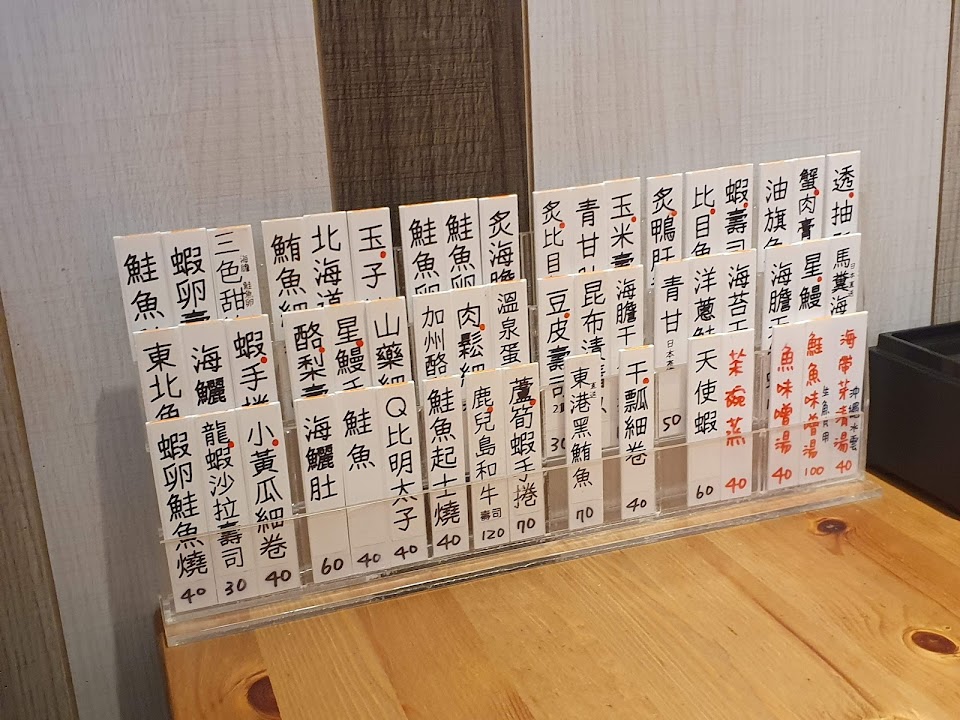 鮭魚
蝦卵
三色甜
海膽 鮭魚卵
鮪魚細
北海道
玉子
鮭魚
鮭魚
炙海膽
炙比目
青甘
玉米
炙鴨肝
比目魚
蝦壽司
油旗魚
蟹肉膏
透抽
東北
海鱺
蝦手捲
酪梨壽
星鰻手
山藥細
加州酪
肉鬆
溫泉蛋
豆皮壽
30
昆布漬
海膽干
青甘
日本產
50
洋蔥鮭
海苔玉
海膽干
星鰻
馬糞海
日本產
蝦卵鮭魚燒
40
龍蝦沙拉壽司
30
小黃瓜細卷
40
海鱺肚
60
鮭魚
40
Q比明太子
40
鮭魚起士燒
40
鹿兒島和牛
壽司
120
蘆筍蝦手捲
70
東港黑鮪魚
70
干瓢細卷
40
天使蝦
60
茶碗蒸
40
魚味噌湯
40
鮭魚味噌湯
100
海帶芽清湯
沖繩水雲
40